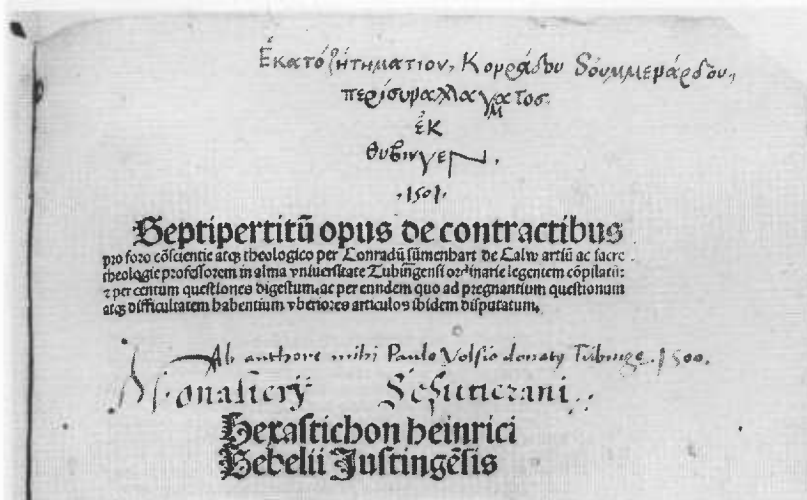 Ἑκατοζήτηματιον, Κορράδου Sούμμεράρδου,
περὶ συμαλλαγματος
ἐκ
Θυβινγεν.
·1501·
Septipertitū opus de contractibus
pro foro cōscientie atqꝫ theologico per Conradū sūmenhart de Calw artiū ac sacre
theologie professorem in alma vniuersitate Tubingensi ordinarie legentem cōpilatū:
⁊ per centum questiones digestum: ac per eundem quo ad pregnantium questionum
atqꝫ difficultatem habentium vberiores articulos ibidem disputatum.
Ab authore mihi Paulo Volsio donatꝰ Tubinge. 1500.
Monasterij Schutterani.
Hexastichon heinrici
Bebelii Justingēsis